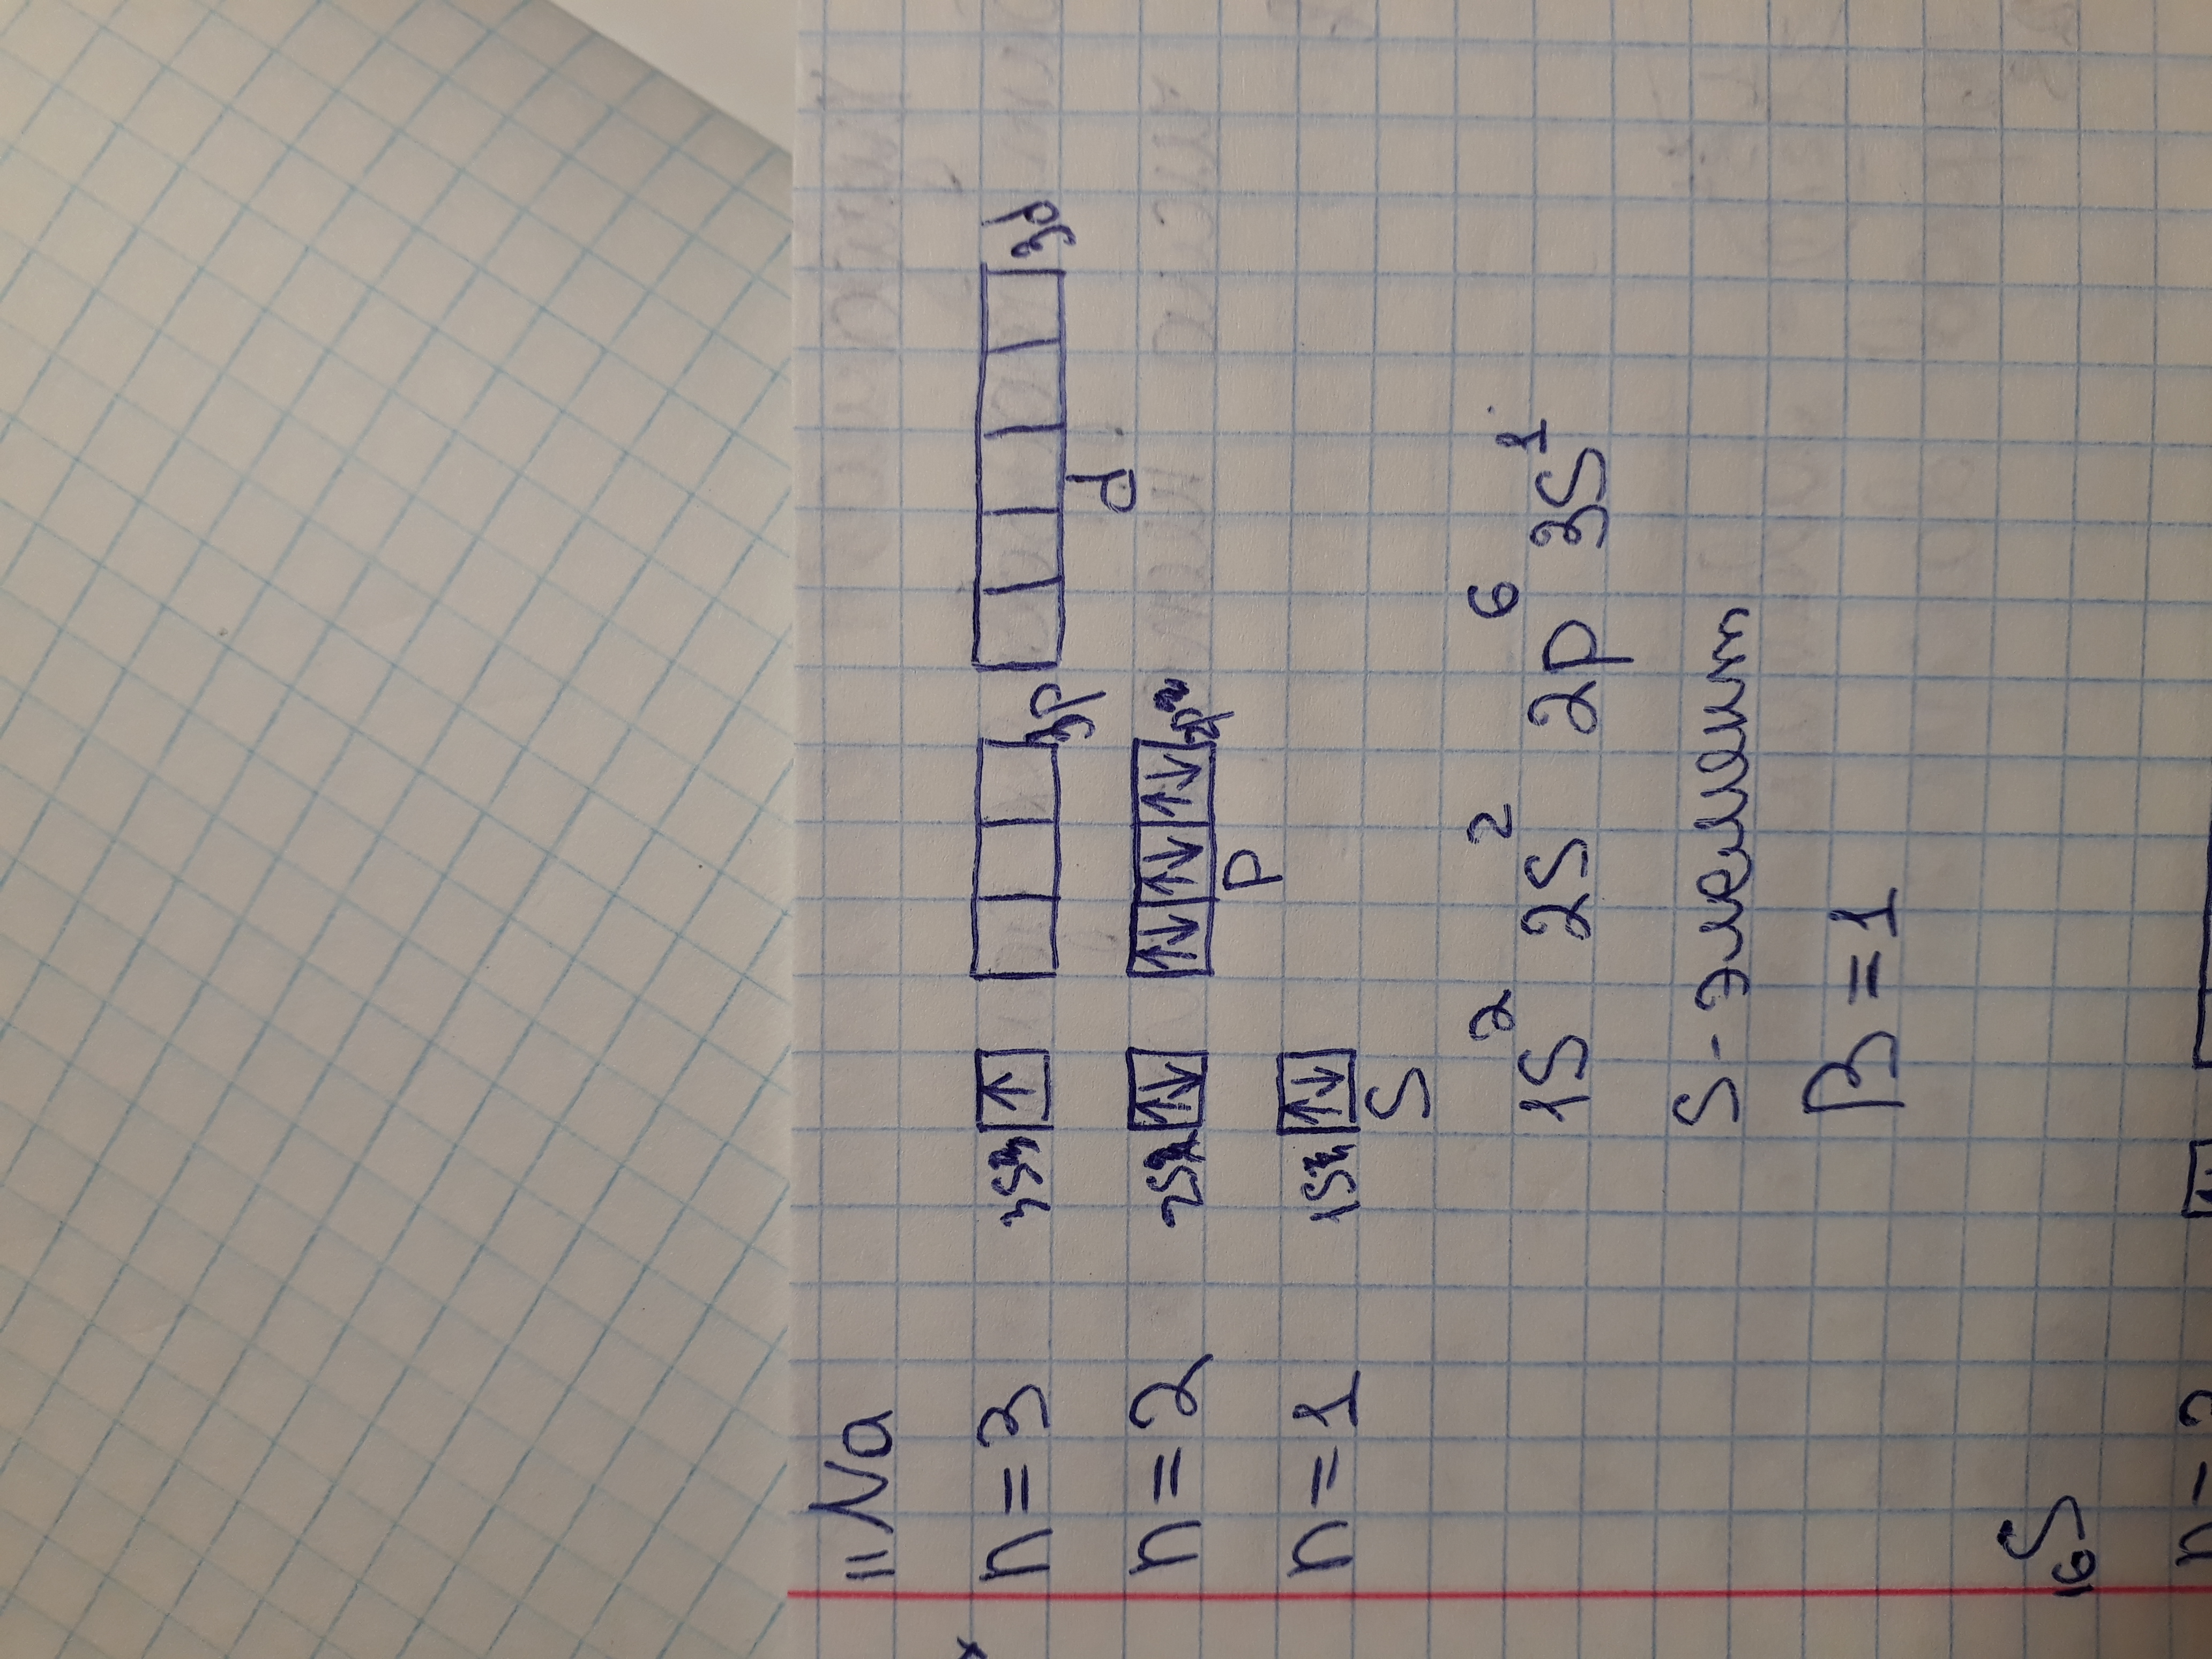 ₁₁Na
n=3 3s 3p 3d
n=2 2s 2p d
n=1 1s p
s
1s² 2s² 2p⁶ 3s¹
s-элемент
B=1
₁₆S